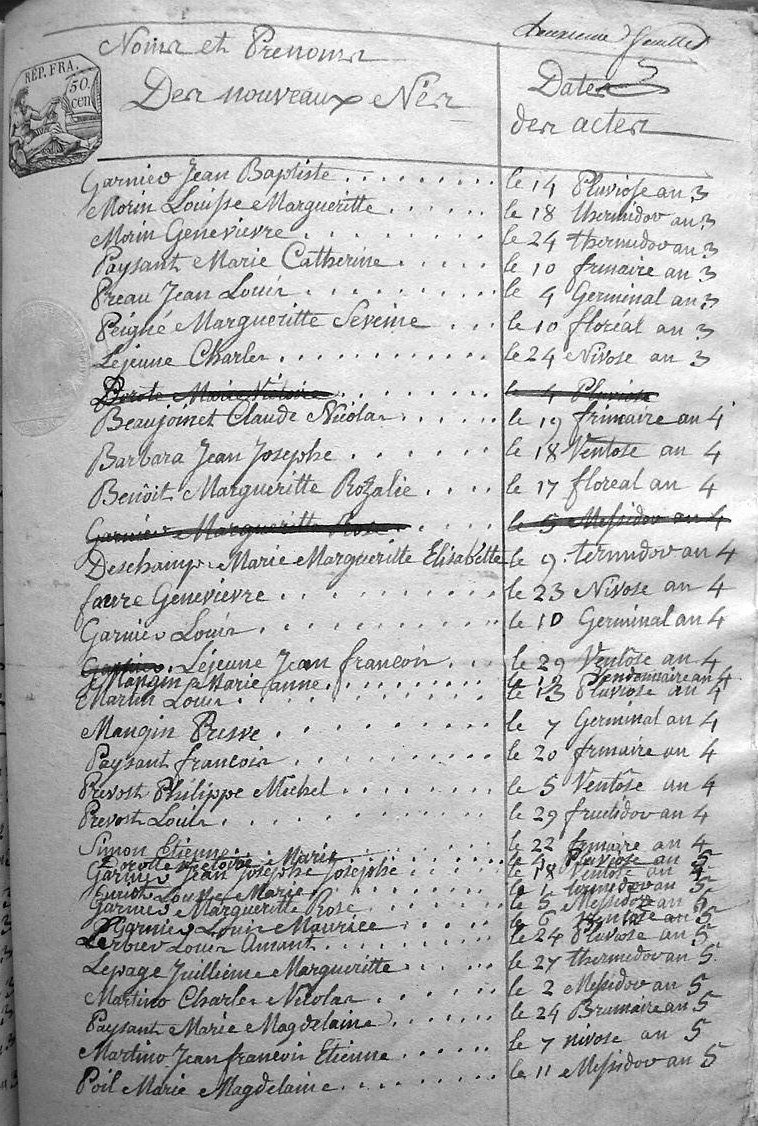 deuxieme feuillet
REP. FRA.
50.
cen
Noms et Prenoms
Des nouveaux Nés
Dates
des actes
Garnier Jean Baptiste . . . . . . . . . le 14 Pluviose an 3
Morin Louisse Margueritte . . . . . . le 18 thermidor an 3
Morin Genevievre . . . . . . . . le 24 thermidor an 3
Paysant Marie Catherine . . . . . le 10 frimaire an 3
Preau Jean Louis . . . . . . . . le 4 Germinal an 3
Peigné Margueritte Severine . . . le 10 floréal an 3
Lejeune Charles . . . . . . . . . le 24 Nivose an 3
Marie Victoire . . . . . le 4 Pluviose
Beaujoinet Claude Nicolas . . . . . le 19 frimaire an 4
Barbara Jean Josephe . . . . . . le 18 Ventose an 4
Benôit Margueritte Rozalie . . . . le 17 floreal an 4
Garnier Margueritte Rose . . . . . le 5 Messidor an 4
Deschamps Marie Margueritte Elisabette le 9 termidor an 4
faure Genevievre . . . . . . . . le 23 Nivose an 4
Garnier Louis . . . . . . . . . . le 10 Germinal an 4
Garnier. Lejeune Jean francois . . . le 29 Ventôse an 4
Mangin Marie anne . . . . . . . le 12 Vendemiaire an 4
Martin Louis . . . . . . . . . le 13 Pluviose an 4
Mangin Pierre . . . . . . . . . le 7 Germinal an 4
Paysant francois . . . . . . . . le 20 frimaire an 4
Prevost Philippe Michel . . . . . . le 5 Ventôse an 4
Prevost Louis . . . . . . . . . . le 29 fructidor an 4
Simon Etienne . . . . . . . . . le 22 frimaire an 4
Victoire Marie . . . . . . le 4 Pluviose an 5
Garnier Jean Josephe Josephe . . . . le 18 Ventose an
Louisse Marie . . . . . . . . le 1 termidor an 5
Garnier Margueritte Rose . . . . . le 5 Messidor an 5
Garnier Louis Maurice . . . . . . le 6 Ventose an 5
Lerbier Louis Amant . . . . . . . le 24 Pluviose an 5
Lepage Juillienne Margueritte . . . . le 27 thermidor an 5
Martino Charles Nicolas . . . . . . le 2 Messidor an 5
Paysant Marie Magdelaine . . . . . le 24 Brumaire an 5
Martino Jean francois Etienne . . . . le 7 nivose an 5
Poil Marie Magdelaine . . . . . . . le 11 Messidor an 5